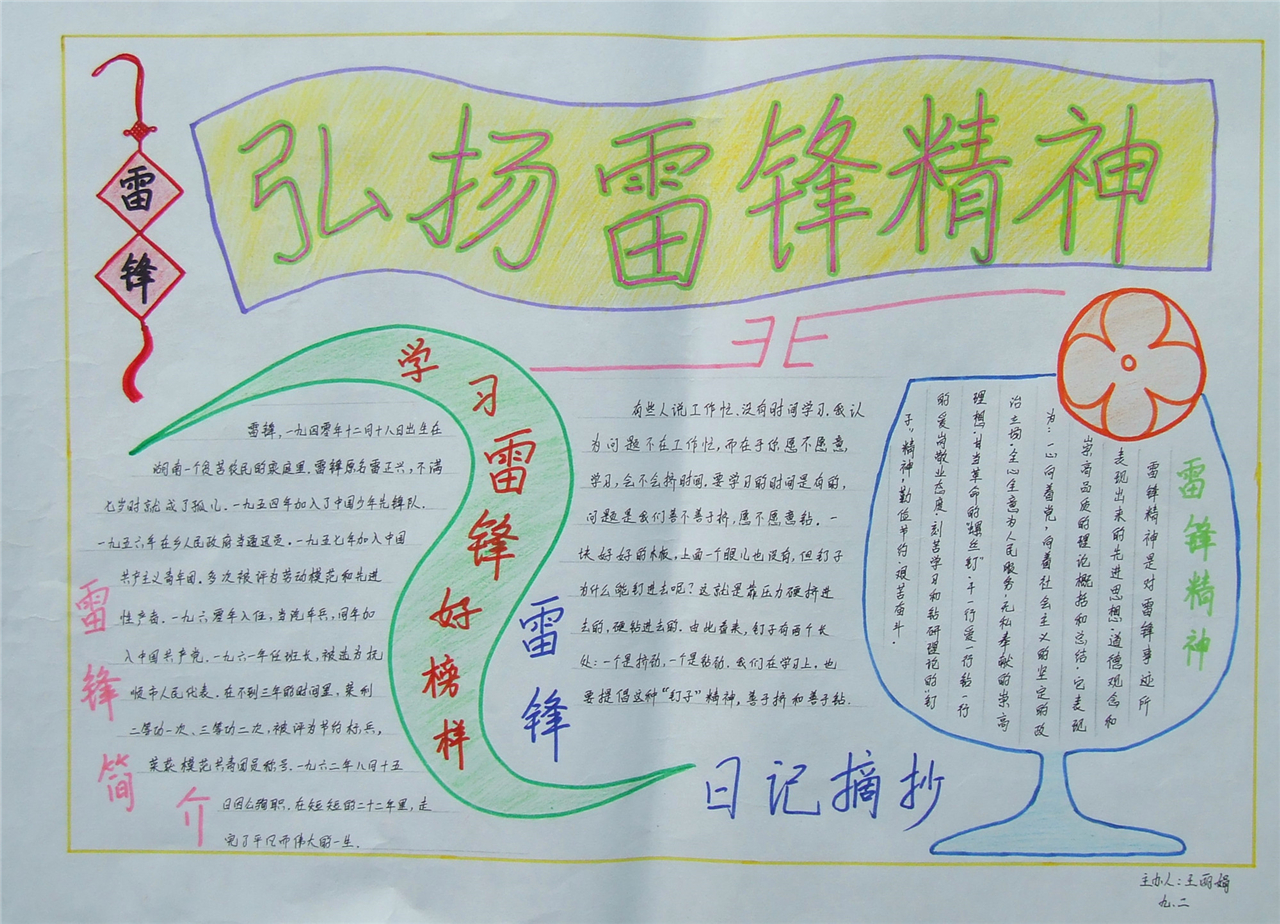 弘扬雷锋精神
雷
锋
学习雷锋好榜样
雷锋，一九四零年十二月十八日出生在
湖南一个贫苦农民的家庭里，雷锋原名雷正兴，不满
七岁时就成了孤儿．一九五四年加入了中国少年先锋队．
一九五六年在乡人民政府当通迅员．一九五七年加入中国
共产主义青年团．多次被评为劳动模范和先进
性产者．一九六零年入伍，当汽车兵，同年加
入中国共产党．一九六一年任班长，被选为抚
顺市人民代表．在不到三年的时间里，荣利
二等功一次、三等功二次，被评为节约标兵，
荣获模范共青团员称号．一九六二年八月十五
日因公殉职．在短短的二十二年里，走
完了平凡而伟大的一生．
雷锋简介
有些人说工作忙、没有时间学习．我认
为问题不在工作忙，而在于你愿不愿意
学习，会不会挤时间．要学习的时间是有的，
问题是我们善不善于挤，愿不愿意钻．一
块好好的木板，上面一个眼儿也没有，但钉子
为什么能钉进去呢？这就是靠压力硬挤进
去的，硬钻进去的．由此看来，钉子有两个长
处：一个是挤劲，一个是钻劲．我们在学习上，也
要提倡这种“钉子”精神，善于挤和善于钻．
雷锋
日记摘抄
雷锋精神
雷锋精神是对雷锋事迹所
表现出来的先进思想．道德观念和
崇高品质的理论概括和总结．它表现
为：一心向着党，向着社会主义的坚定的政
治立场．全心全意为人民服务．无私奉献的崇高
理想．甘当革命的“螺丝钉”．干一行爱一行钻一行
的爱岗敬业态度．刻苦学习和钻研理论的“钉
子”精神，勤俭节约．艰苦奋斗．
主办人：王丽娟
九．二